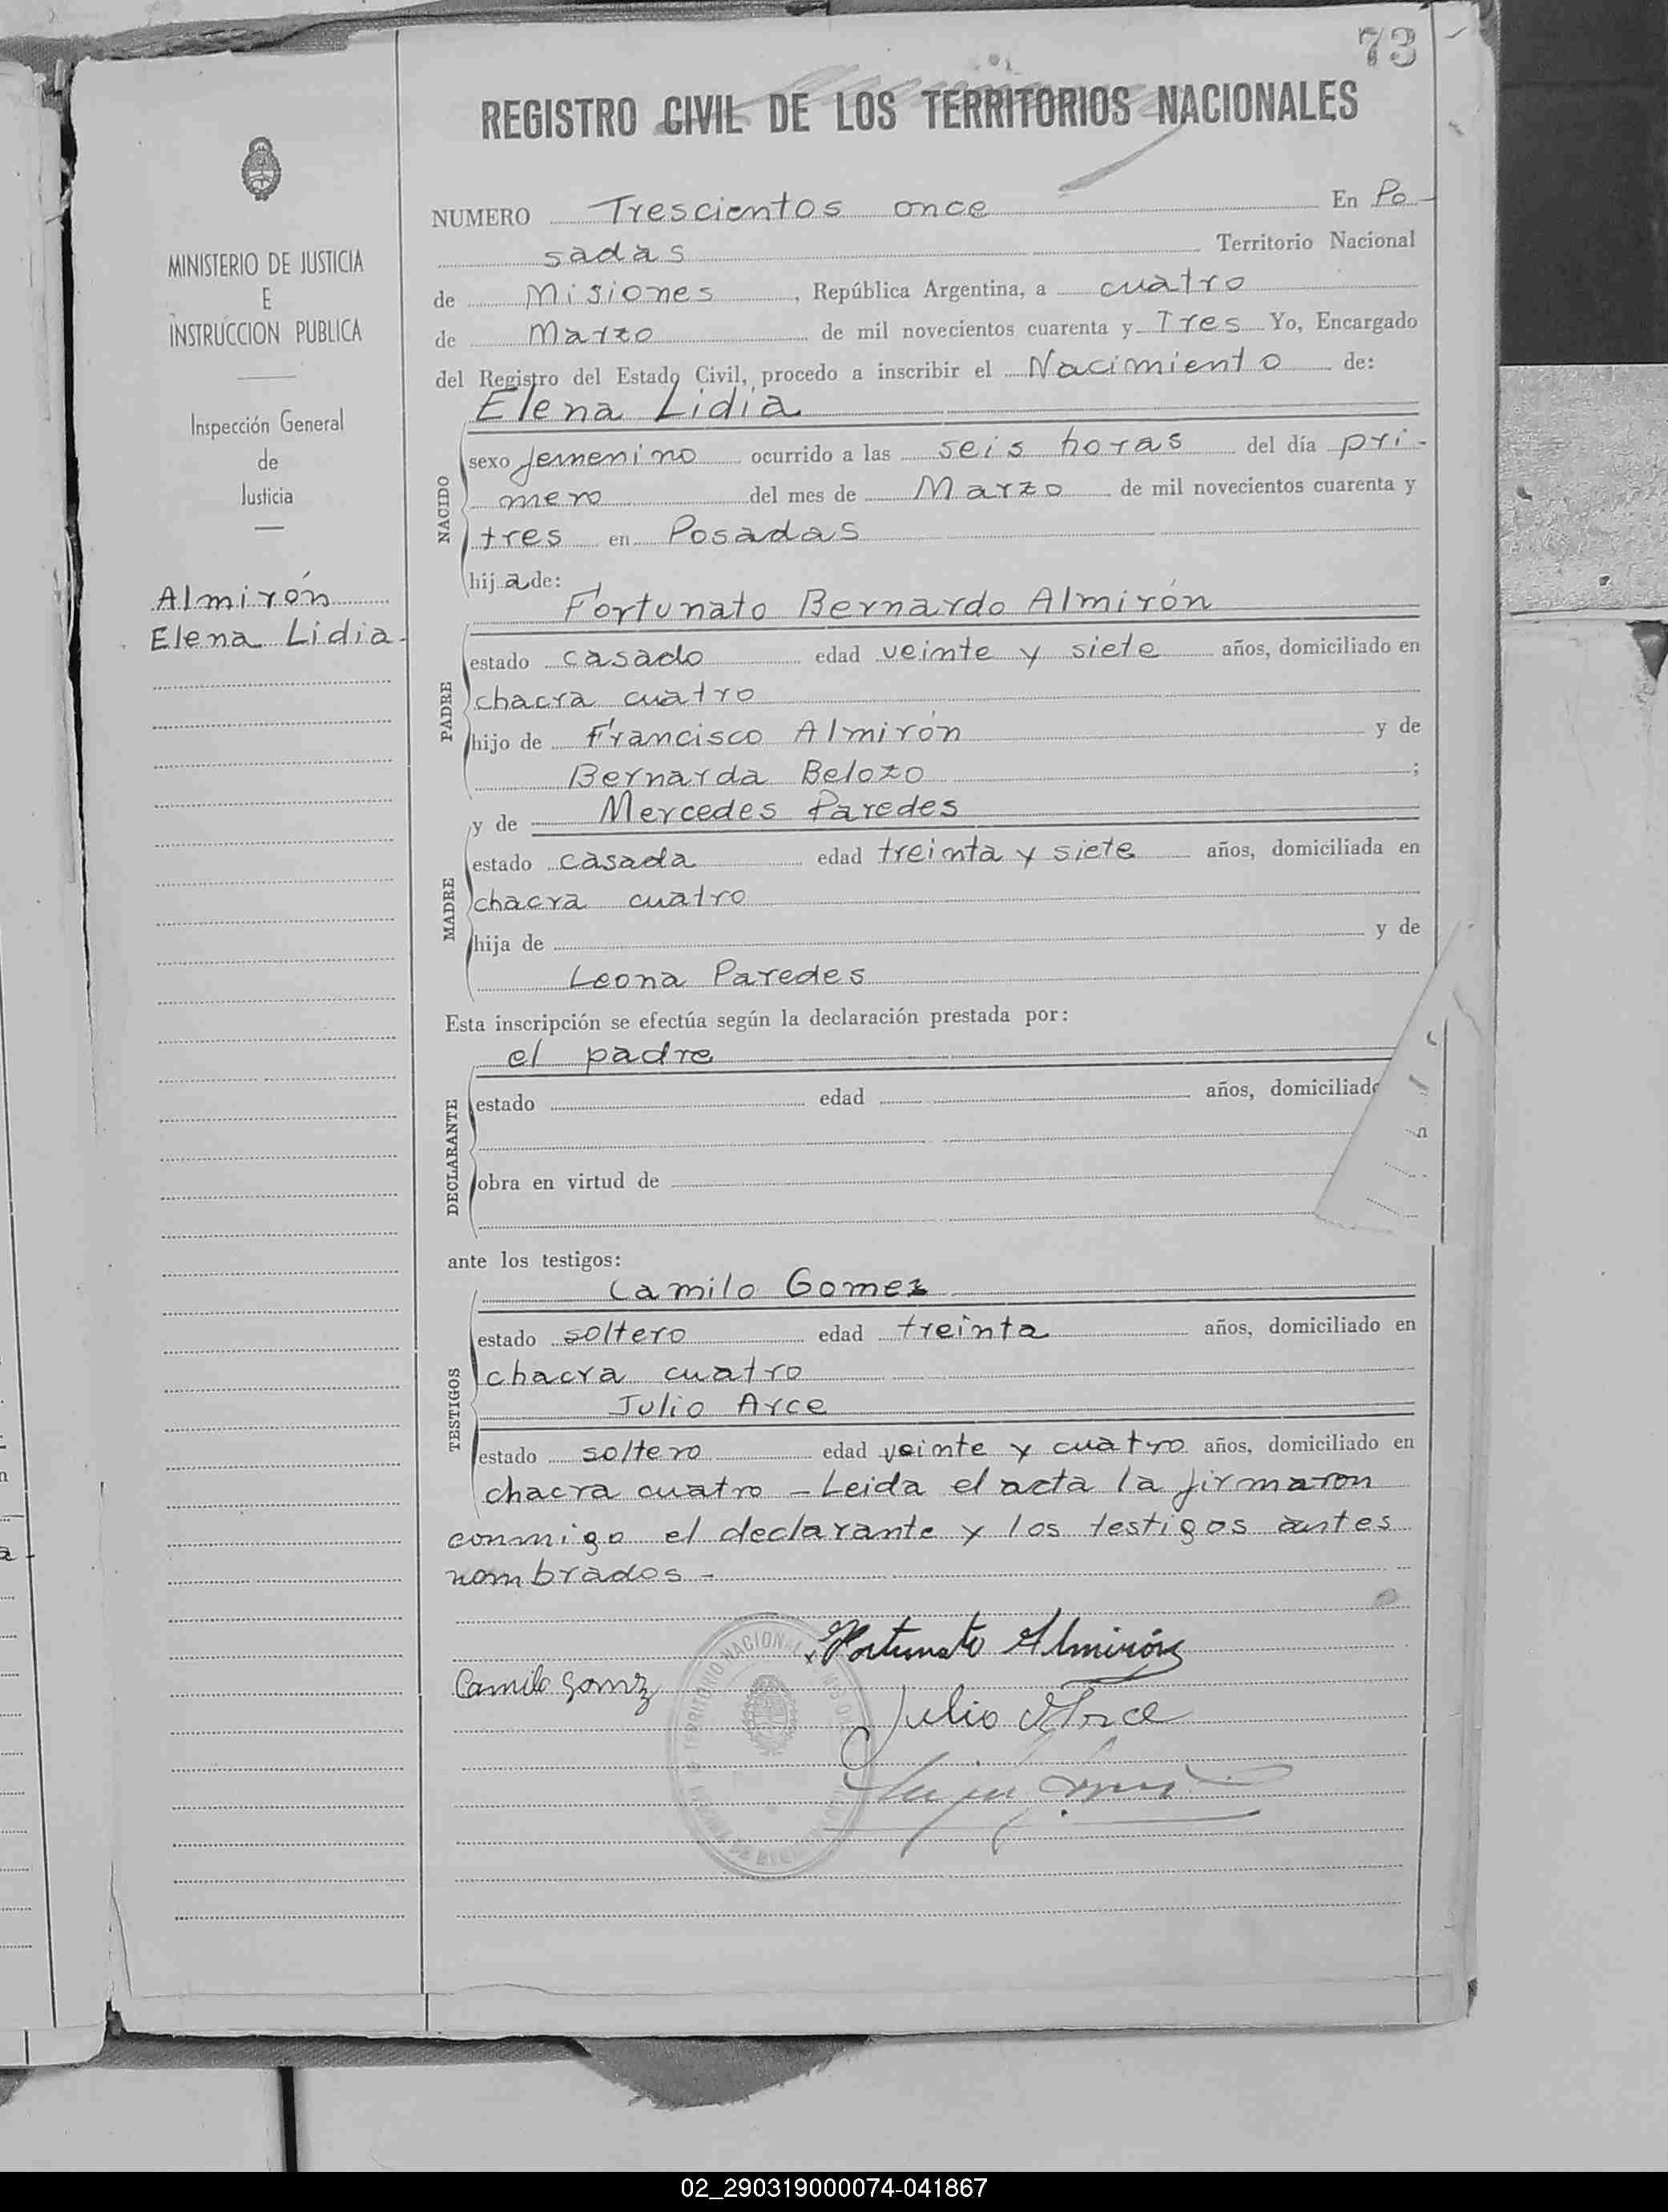 73
REGISTRO CIVIL DE LOS TERRITORIOS NACIONALES
MINISTERIO DE JUSTICIA
E
INSTRUCCION PUBLICA
Inspección General
de
Justicia
Almirón
Elena Lidia
NUMERO Trescientos once En Po-
sadas Territorio Nacional
de Misiones, República Argentina, a cuatro
de Marzo de mil novecientos cuarenta y Tres Yo, Encargado
del Registro del Estado Civil, procedo a inscribir el Nacimiento de:
Elena Lidia
NACIDO
sexo femenino ocurrido a las seis horas del día pri-
mero del mes de Marzo de mil novecientos cuarenta y
tres en Posadas
hij a de:
Fortunato Bernardo Almirón
PADRE
estado casado edad veinte y siete años, domiciliado en
chacra cuatro
hijo de Francisco Almirón y de
Bernarda Belozo ;
y de Mercedes Paredes
MADRE
estado casada edad treinta y siete años, domiciliada en
chacra cuatro
hija de y de
Leona Paredes
Esta inscripción se efectúa según la declaración prestada por:
el padre
DECLARANTE
estado edad años, domiciliado
obra en virtud de
ante los testigos:
Camilo Gomez
TESTIGOS
estado soltero edad treinta años, domiciliado en
chacra cuatro
Julio Arce
estado soltero edad veinte y cuatro años, domiciliado en
chacra cuatro - Leida el acta la firmaron
conmigo el declarante y los testigos antes
nombrados -
Fortunato Almirón
Camilo Gomz
Julio Arce
TERRITORIO NACIONAL
02_290319000074-041867